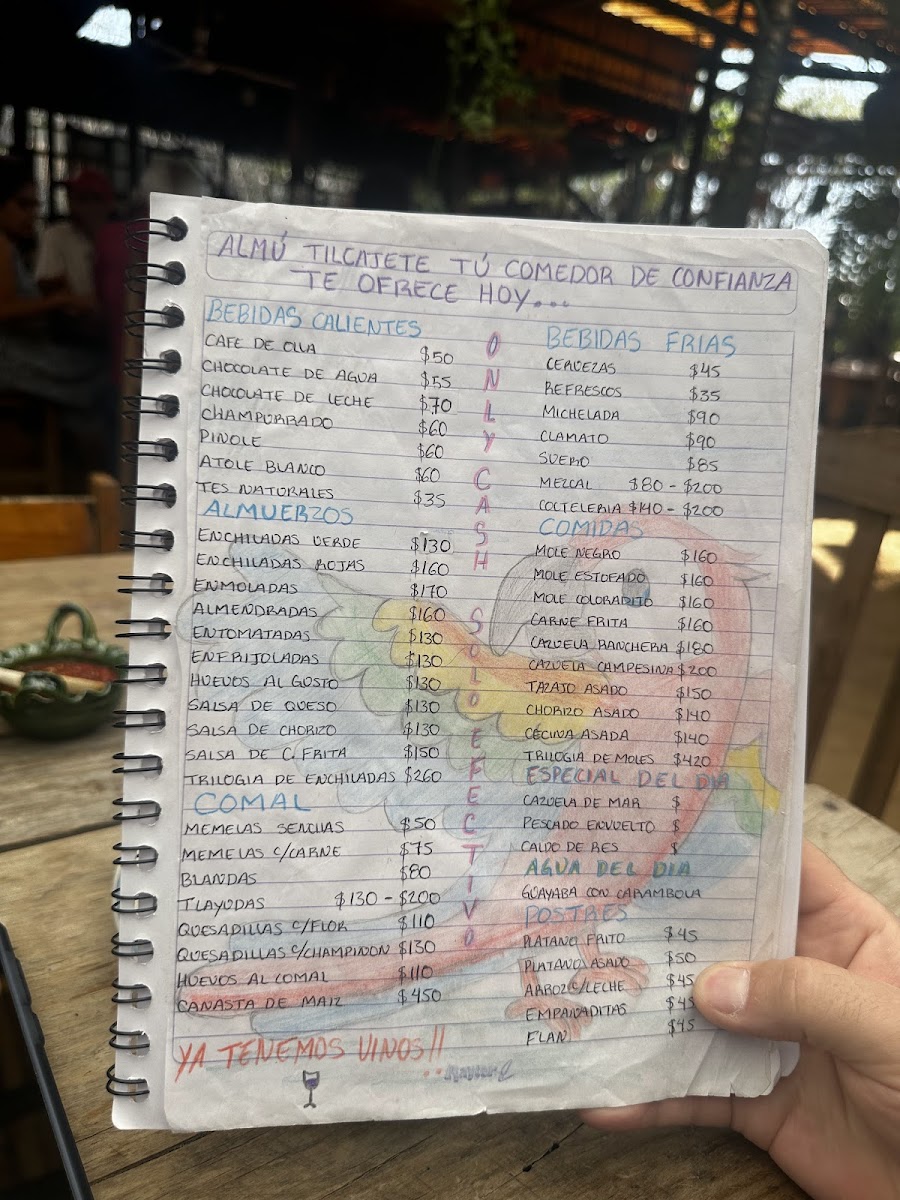 ALMÚ TILCAJETE TÚ COMEDOR DE CONFIANZA
TE OFRECE HOY...
BEBIDAS CALIENTES
CAFE DE OLLA $50
CHOCOLATE DE AGUA $55
CHOCOLATE DE LECHE $70
CHAMPURRADO $60
PINOLE $60
ATOLE BLANCO $60
TES NATURALES $35
ALMUERZOS
ENCHILADAS VERDE $130
ENCHILADAS ROJAS $160
ENMOLADAS $170
ALMENDRADAS $160
ENTOMATADAS $130
ENFRIJOLADAS $130
HUEVOS AL GUSTO $130
SALSA DE QUESO $130
SALSA DE CHORIZO $130
SALSA DE C. FRITA $150
TRILOGIA DE ENCHILADAS $260
COMAL
MEMELAS SENCILLAS $50
MEMELAS C/CARNE $75
BLANDAS $80
TLAYUDAS $130 - $200
QUESADILLAS C/FLOR $110
QUESADILLAS C/CHAMPIÑON $130
HUEVOS AL COMAL $110
CANASTA DE MAIZ $450
YA TENEMOS VINOS!!
ONLY CASH SOLO EFECTIVO
BEBIDAS FRIAS
CERVEZAS $45
REFRESCOS $35
MICHELADA $90
CLAMATO $90
SUERO $85
MEZCAL $80 - $200
COCTELERIA $140 - $200
COMIDAS
MOLE NEGRO $160
MOLE ESTOFADO $160
MOLE COLORADITO $160
CARNE FRITA $160
CAZUELA RANCHERA $180
CAZUELA CAMPESINA $200
TAZAJO ASADO $150
CHORIZO ASADO $140
CECINA ASADA $140
TRILOGIA DE MOLES $420
ESPECIAL DEL DIA
CAZUELA DE MAR $
PESCADO ENVUELTO $
CALDO DE RES $
AGUA DEL DIA
GUAYABA CON CARAMBOLA
POSTRES
PLATANO FRITO $45
PLATANO ASADO $50
ARROZ C/LECHE $45
EMPANADITAS $45
FLAN $45